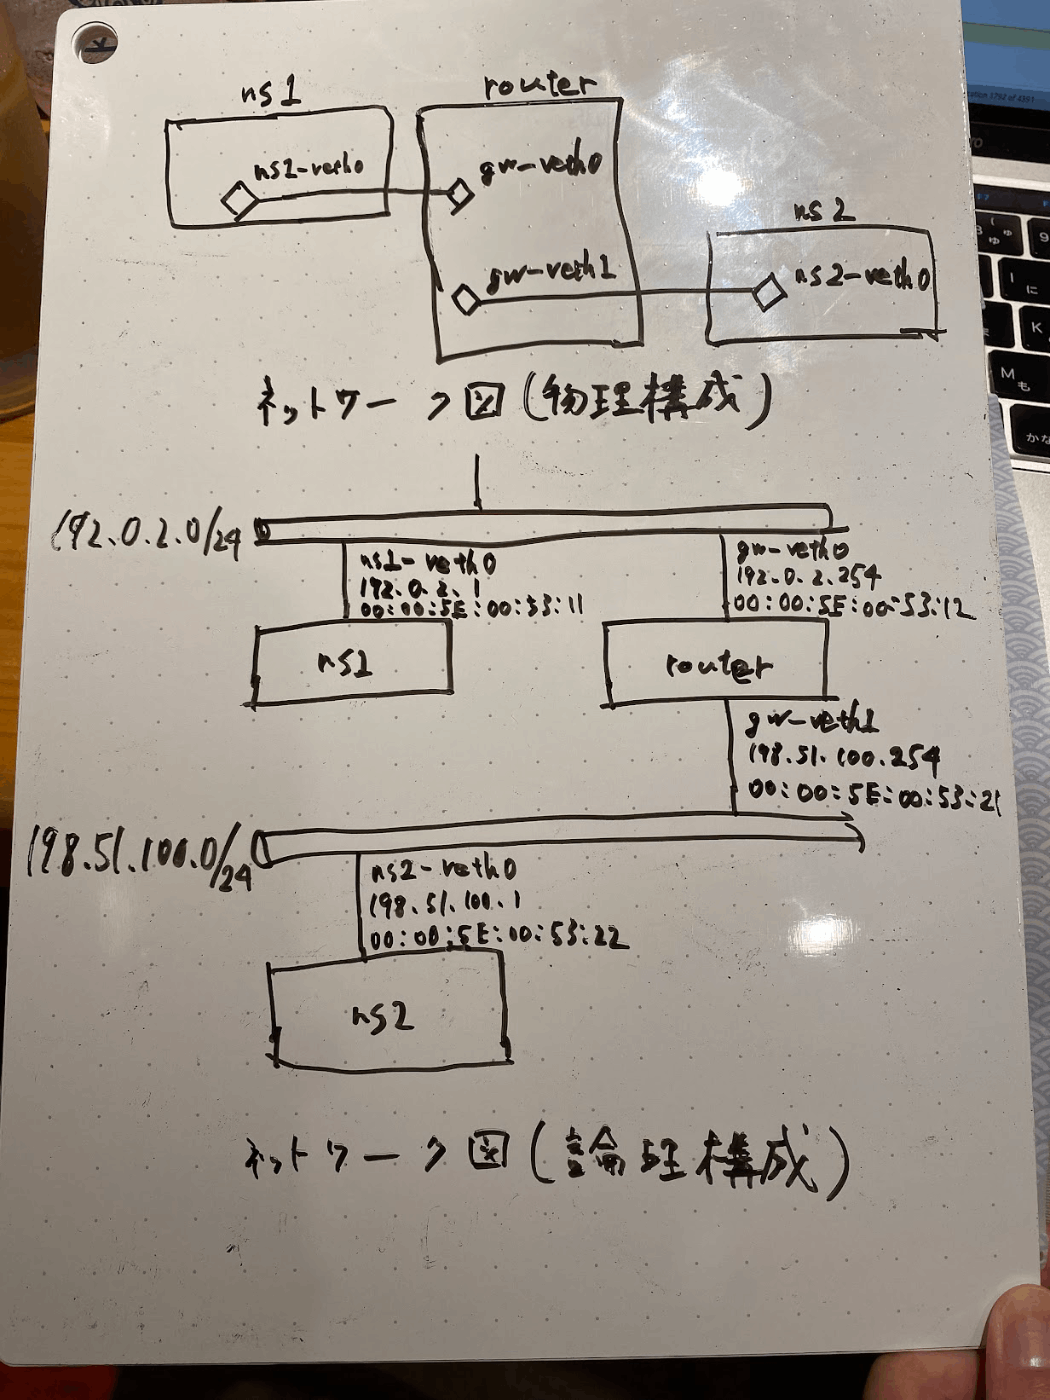 ns1
router
ns2-veth0
gw-veth0
ns2
gw-veth1
ns2-veth0
ネットワーク図(物理構成)
192.0.2.0/24
ns1-veth0
192.0.2.1
00:00:5E:00:53:11
gw-veth0
192.0.2.254
00:00:5E:00:53:12
ns1
router
gw-veth1
198.51.100.254
00:00:5E:00:53:21
198.51.100.0/24
ns2-veth0
198.51.100.1
00:00:5E:00:53:22
ns2
ネットワーク図(論理構成)
M
も
K
に
かな